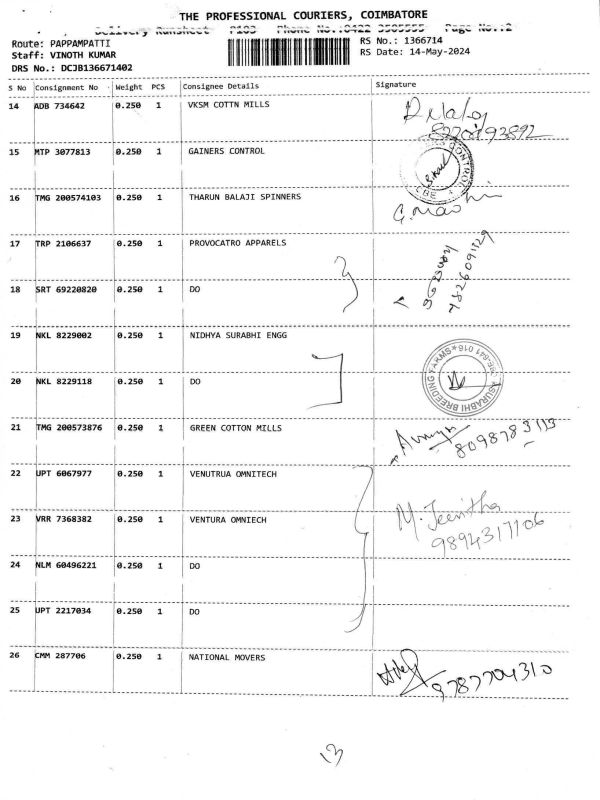 THE PROFESSIONAL COURIERS, COIMBATORE
Delivery Runsheet - P103 Phone No.:0422 3505555 Page No.:2
Route: PAPPAMPATTI
Staff: VINOTH KUMAR
DRS No.: DCJB136671402
RS No.: 1366714
RS Date: 14-May-2024
S No Consignment No Weight PCS Consignee Details Signature
14 ADB 734642 0.250 1 VKSM COTTN MILLS
15 MTP 3077813 0.250 1 GAINERS CONTROL
16 TMG 200574103 0.250 1 THARUN BALAJI SPINNERS
17 TRP 2106637 0.250 1 PROVOCATRO APPARELS
18 SRT 69220820 0.250 1 DO
19 NKL 8229002 0.250 1 NIDHYA SURABHI ENGG
SURABHI BREEDING FARMS
20 NKL 8229118 0.250 1 DO
21 TMG 200573876 0.250 1 GREEN COTTON MILLS
8098783113
22 UPT 6067977 0.250 1 VENUTRUA OMNITECH
23 VRR 7368382 0.250 1 VENTURA OMNIECH
M. Jeenitha
9894317106
24 NLM 60496221 0.250 1 DO
25 UPT 2217034 0.250 1 DO
26 CMM 287706 0.250 1 NATIONAL MOVERS
9787704310
13